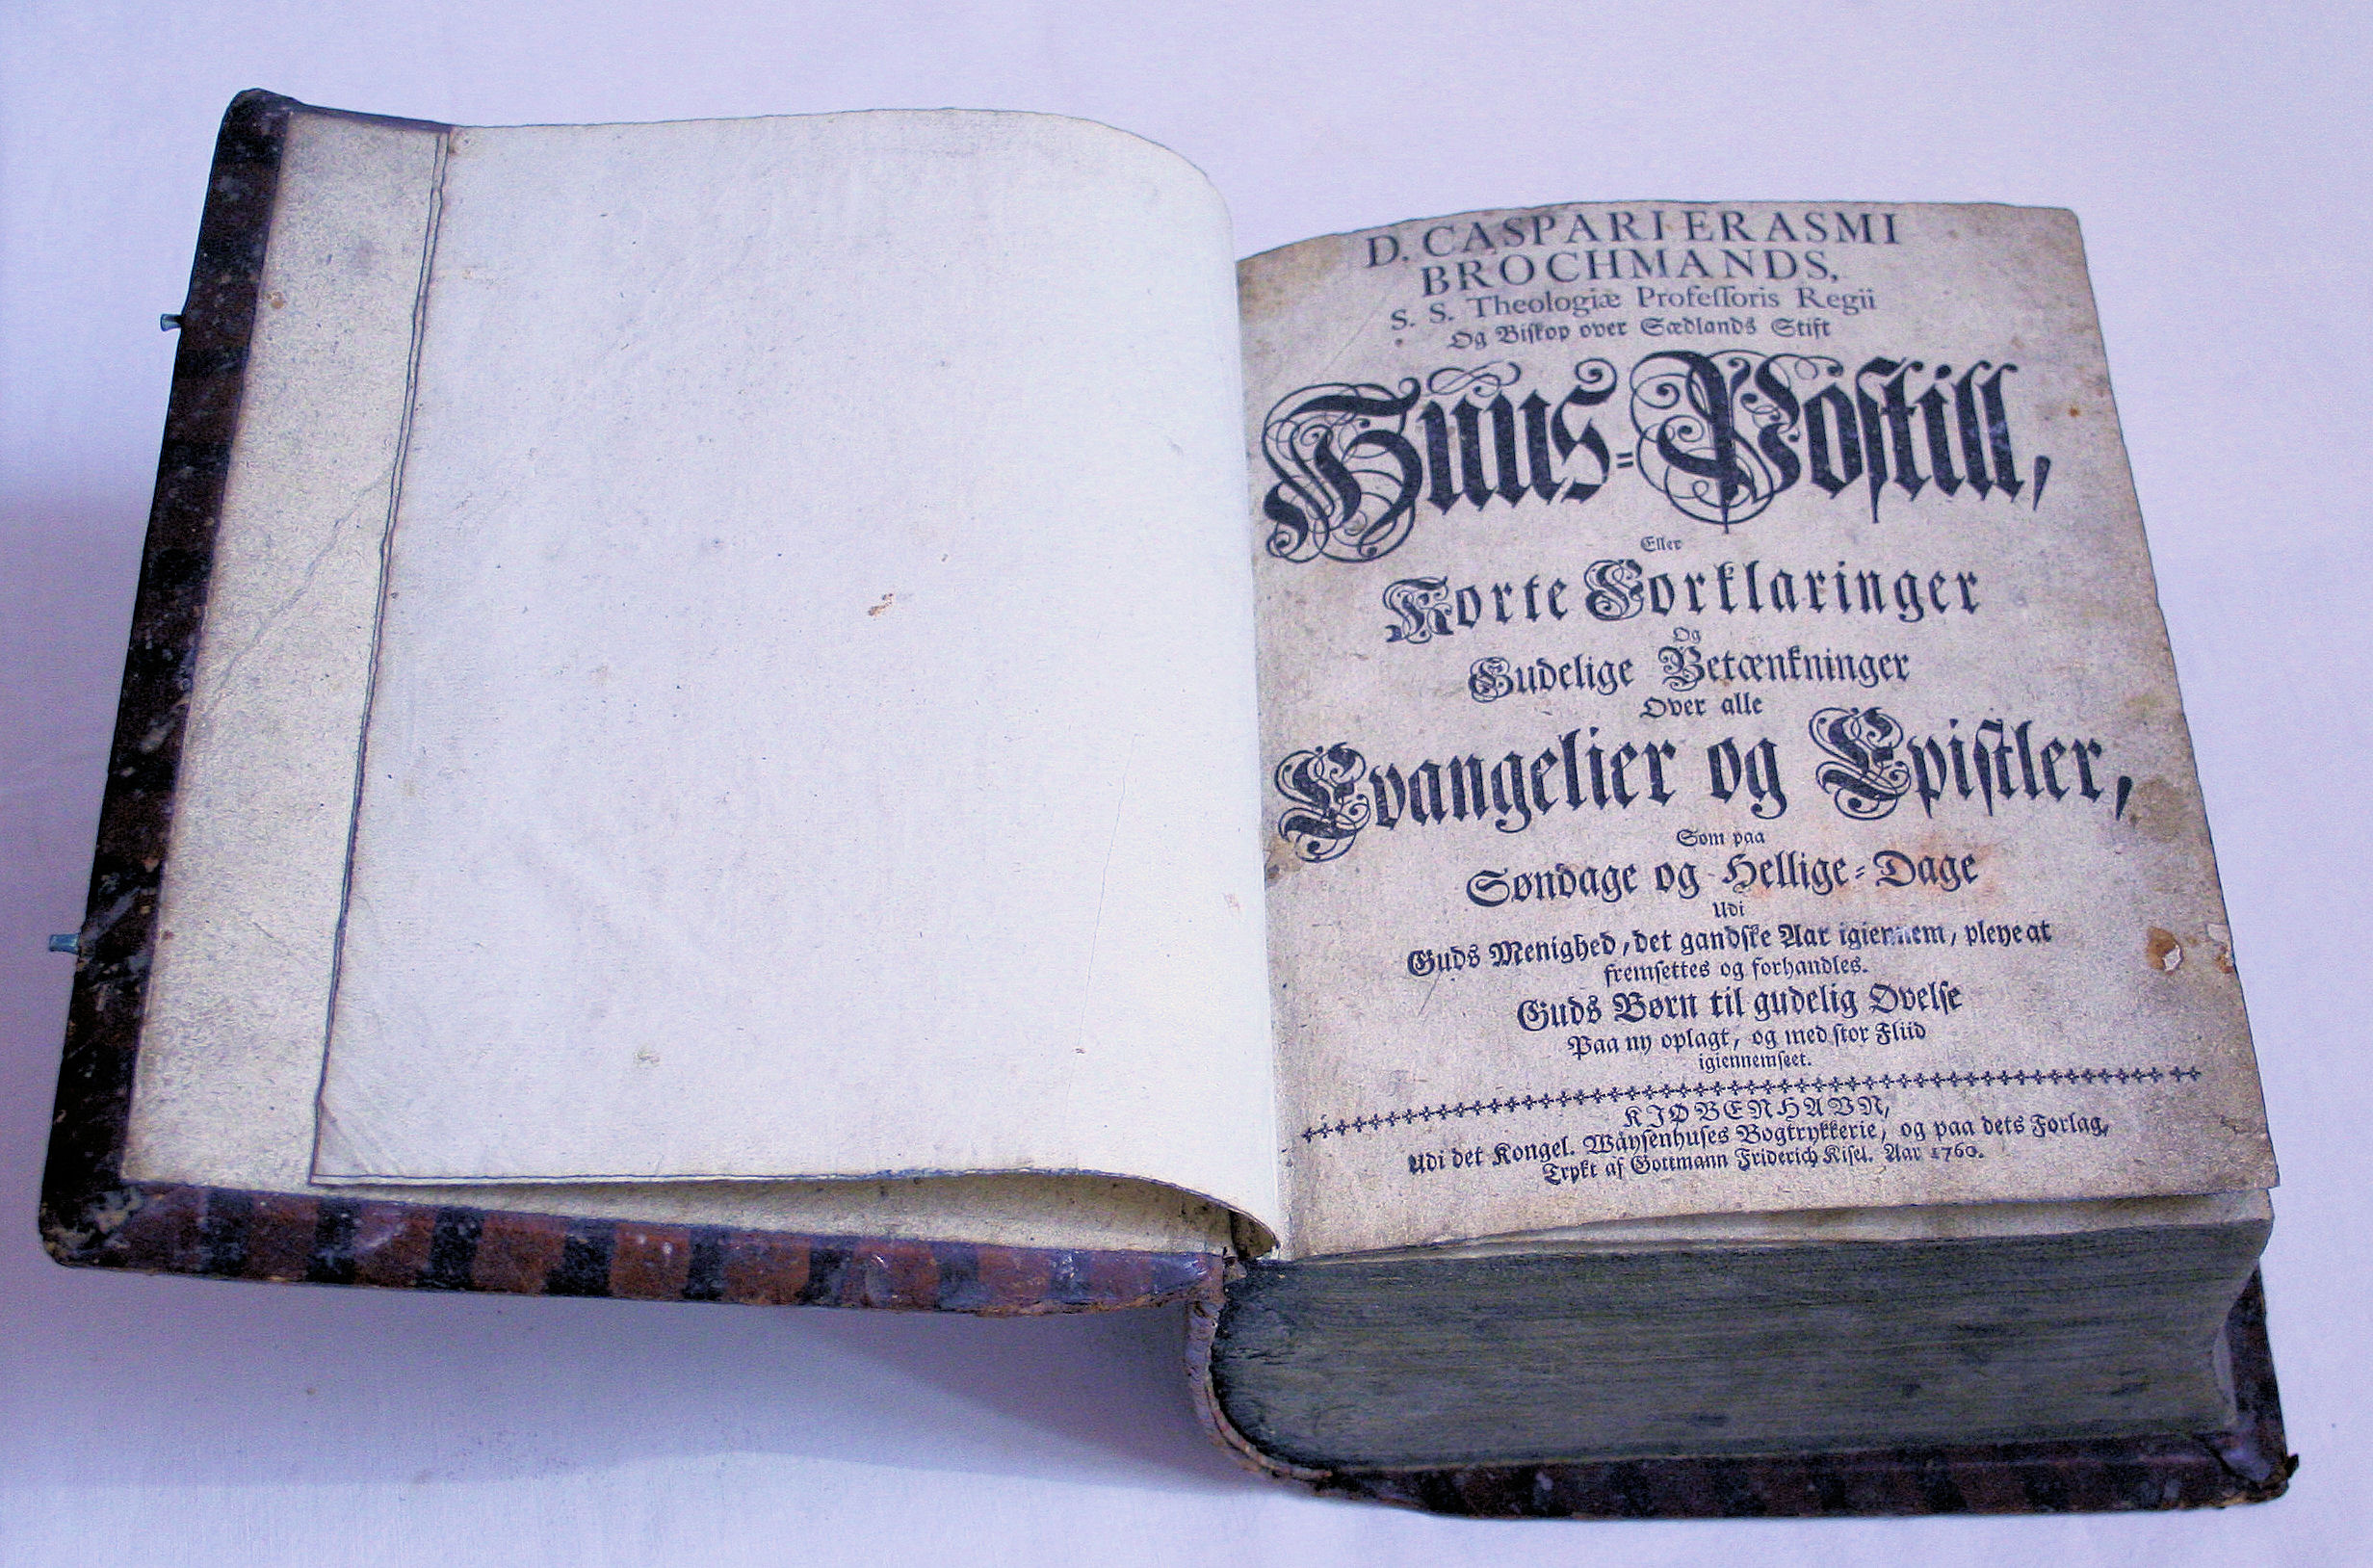 D. CASPARI ERASMI
BROCHMANDS,
S. S. Theologiæ Profeſſoris Regii
Og Biſkop over Sædlands Stift
Huus=Poſtill,
Eller
Korte Forklaringer
Og
Gudelige Betænkninger
Over alle
Evangelier og Epiſtler,
Som paa
Søndage og Hellige=Dage
Udi
Guds Menighed, det gandſke Aar igiennem, pleye at
fremſettes og forhandles.
Guds Børn til gudelig Øvelſe
Paa ny oplagt, og med ſtor Fliid
igiennemſeet.
KIØBENHAVN,
Udi det Kongel. Wäyſenhuſes Bogtrykkerie, og paa dets Forlag,
Trykt af Gottmann Friderich Kiſel. Aar 1760.